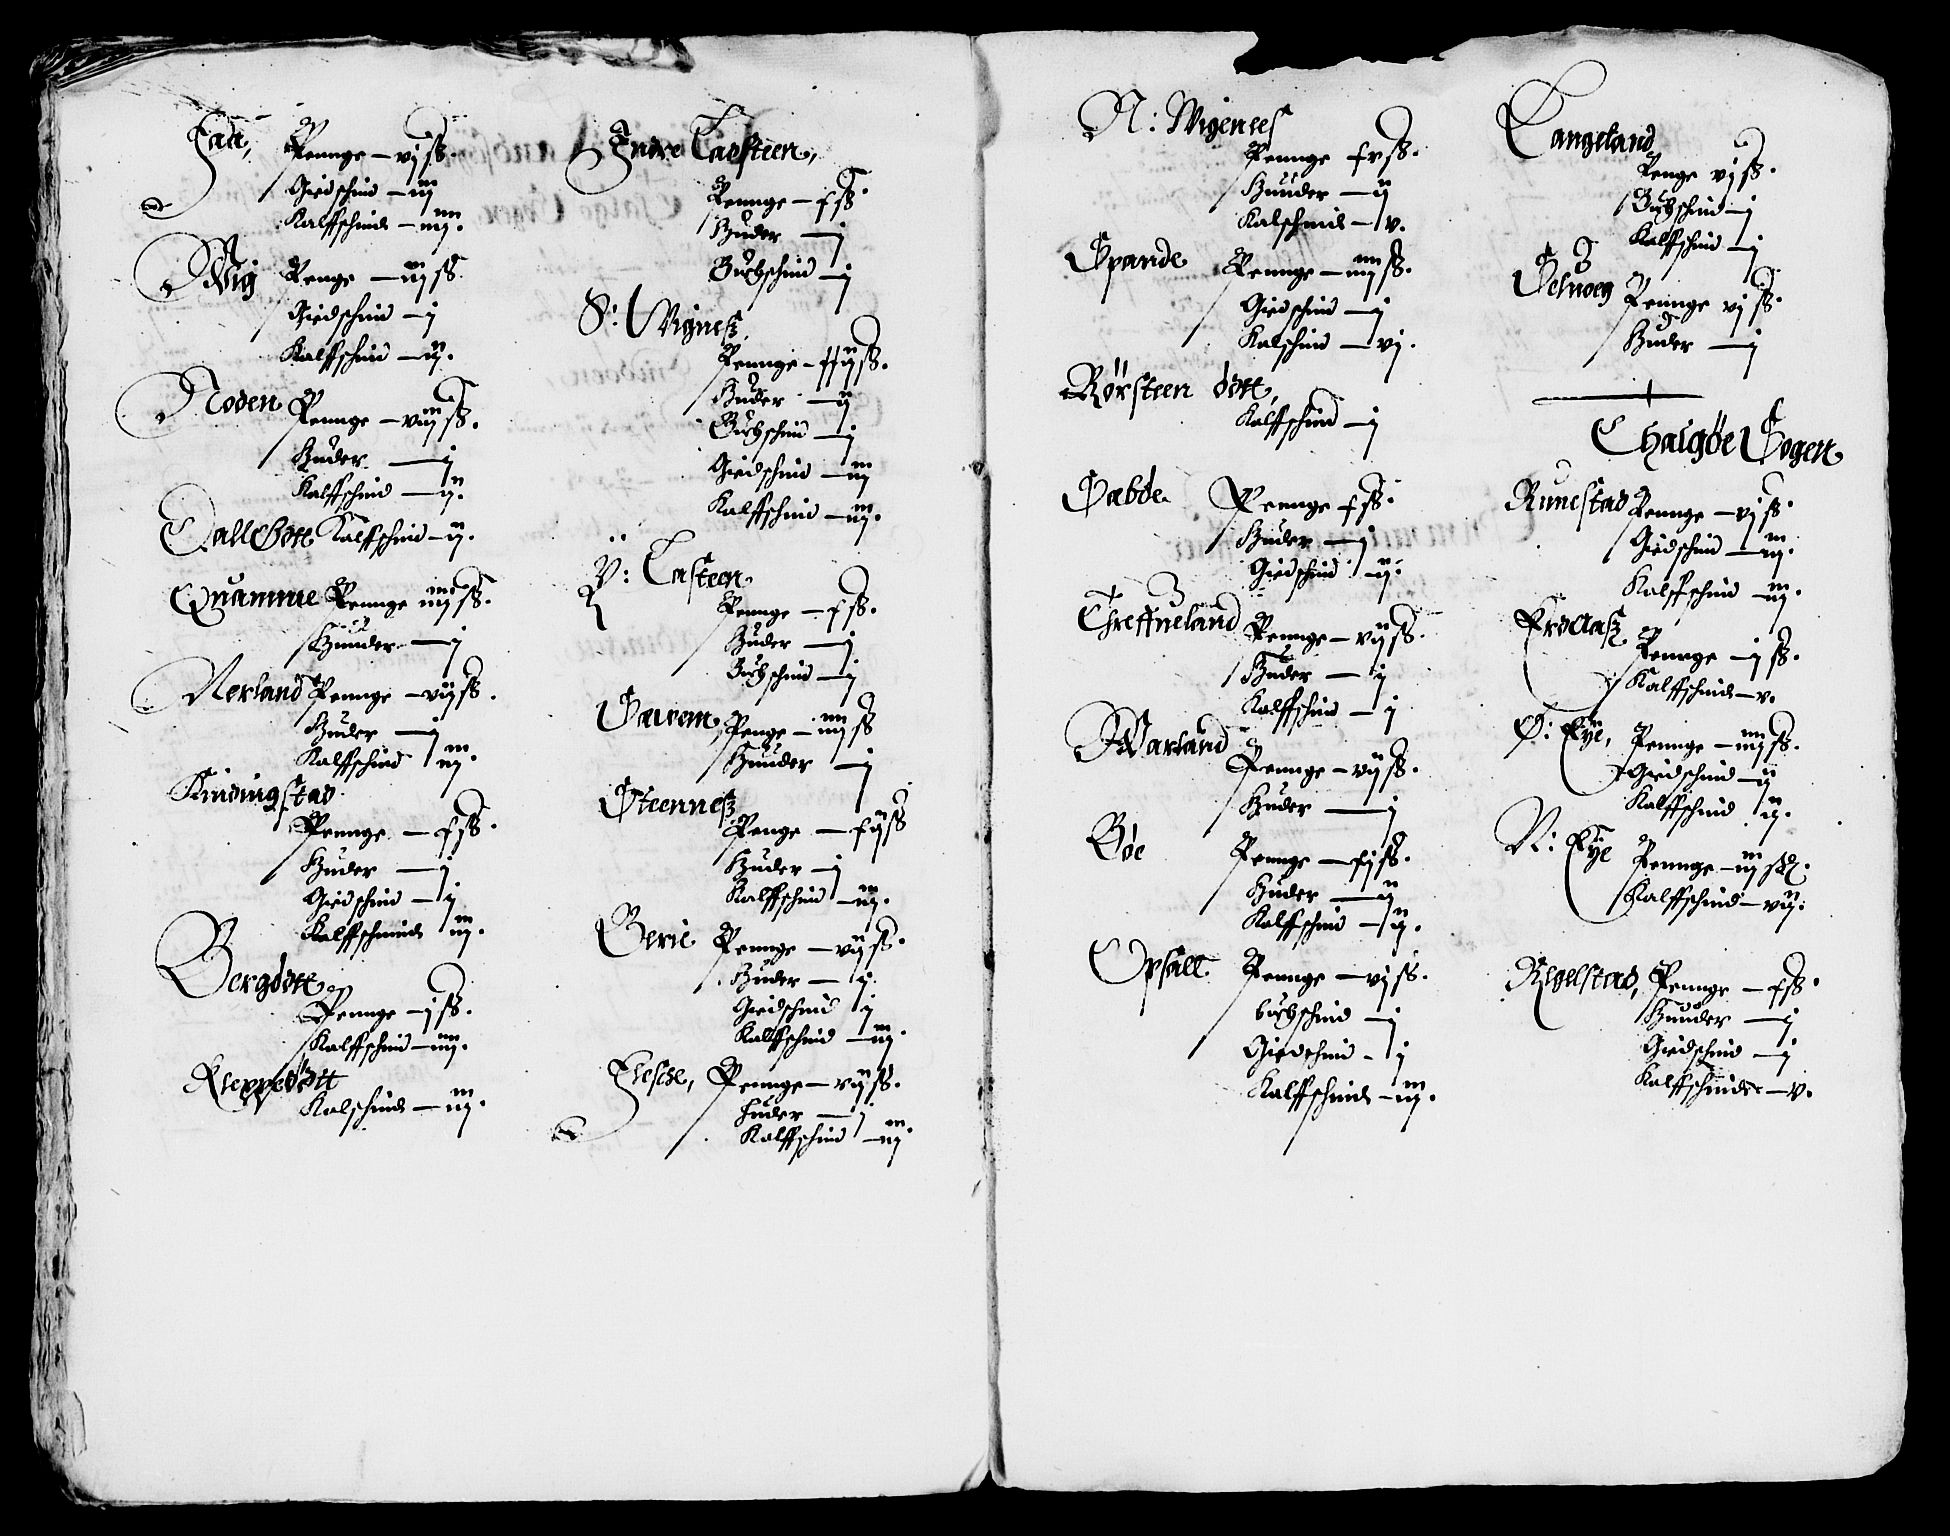 Fatt, Pennge – vj ß.
Giedschind – iij
Kalffschindt – iiij.
Wig Penge – iij ß
Giedschind – j
Kalffschind – ij.
Noden Pennge – viij ß.
Huder – j
Kalffschind – ij.
Dall Øde Kalffschind – ij.
Quamme Pennge iiij ß.
Huuder – j
Nerland Pennge – vij ß.
Huder – j
Kalffschind iij.
Kindingstad
Pennge – x ß.
Huder – j
Giedschind – j
Kalffschindt iij.
Bergøde
Pennge – j ß.
Kalffschind – iiij.
Kleppeøtt
Kalschindt – iij.
Indre Tasteen,
Pennge – x ß
Huder – j
Buchschind – j
S: Wigneß
Pennge – xxij ß.
Huder – ij
Buchschind – j
Giedschind – iij
Kalffschind – iij.
Y: Tasteen
Pennge – x ß.
Huder – j
Buchschind – j
Saurem Penge – iiij ß
Huuder – j
Steenneß
Penge – xij ß
Huder – j
Kalffschind – iij.
Berie Pennge – vij ß.
Huder – j.
Giedschind j
Kalffschind – iij.
Flesche, Pennge – vij ß.
Huder – j
Kalffschind – iij.
N: Wigenees
Pennge xv ß.
Huuder – ij
Kalschindt – v.
Spande Pennge – iiij ß.
Giedschind – j
Kalschind – vj.
Rørsteen øde,
Kalffschind – j
Sæbde Pennge x ß.
Huder – j
Giedschind ij.
Threffneland Pennge – vij ß.
Huder – j
Kalffschind – j
Warland
Pennge – vij ß.
Huder – j
Bøe Pennge – xj ß.
Huder – ij
Kalffschind – ij.
Opsall Pennge – vj ß.
buchschind – j
Giedschind – j
Kalffschindt – iij.
Tangeland
Penge vj ß.
Buchschind – j
Kalffschind – j
Selweg Pennge vj ß.
Huder – j
Thalgøe Sogen
Runestad Pennge – vj ß.
Giedschind – iij.
Kalffschind – iij.
Erølaß Pennge – j ß.
Kalffschindt – v.
S: Eye, Pennge – iiij ß.
Giedschind – ij
Kalffschind ij.
N: Eye Pennge – iij ß.
Kalffschind – vij.
Regelstad, Pennge – x ß.
Huuder – j
Giedschind – j
Kalffschinder – v.